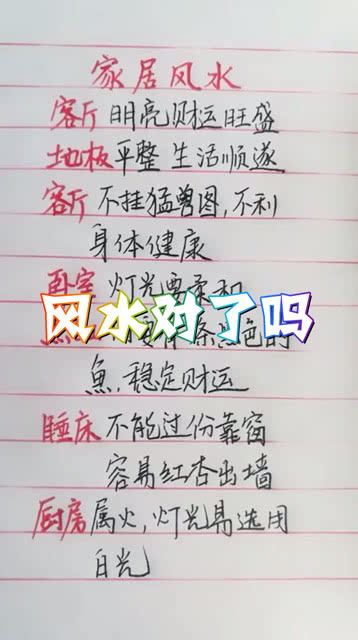 家居风水
客厅 明亮财运旺盛
地板 平整 生活顺遂
客厅 不挂猛兽图,不利
身体健康
卧室 灯光要柔和
风水对了吗
条黑色的
魚,稳定财运
睡床 不能过份靠窗
容易红杏出墙
厨房 属火,灯光易选用
白光